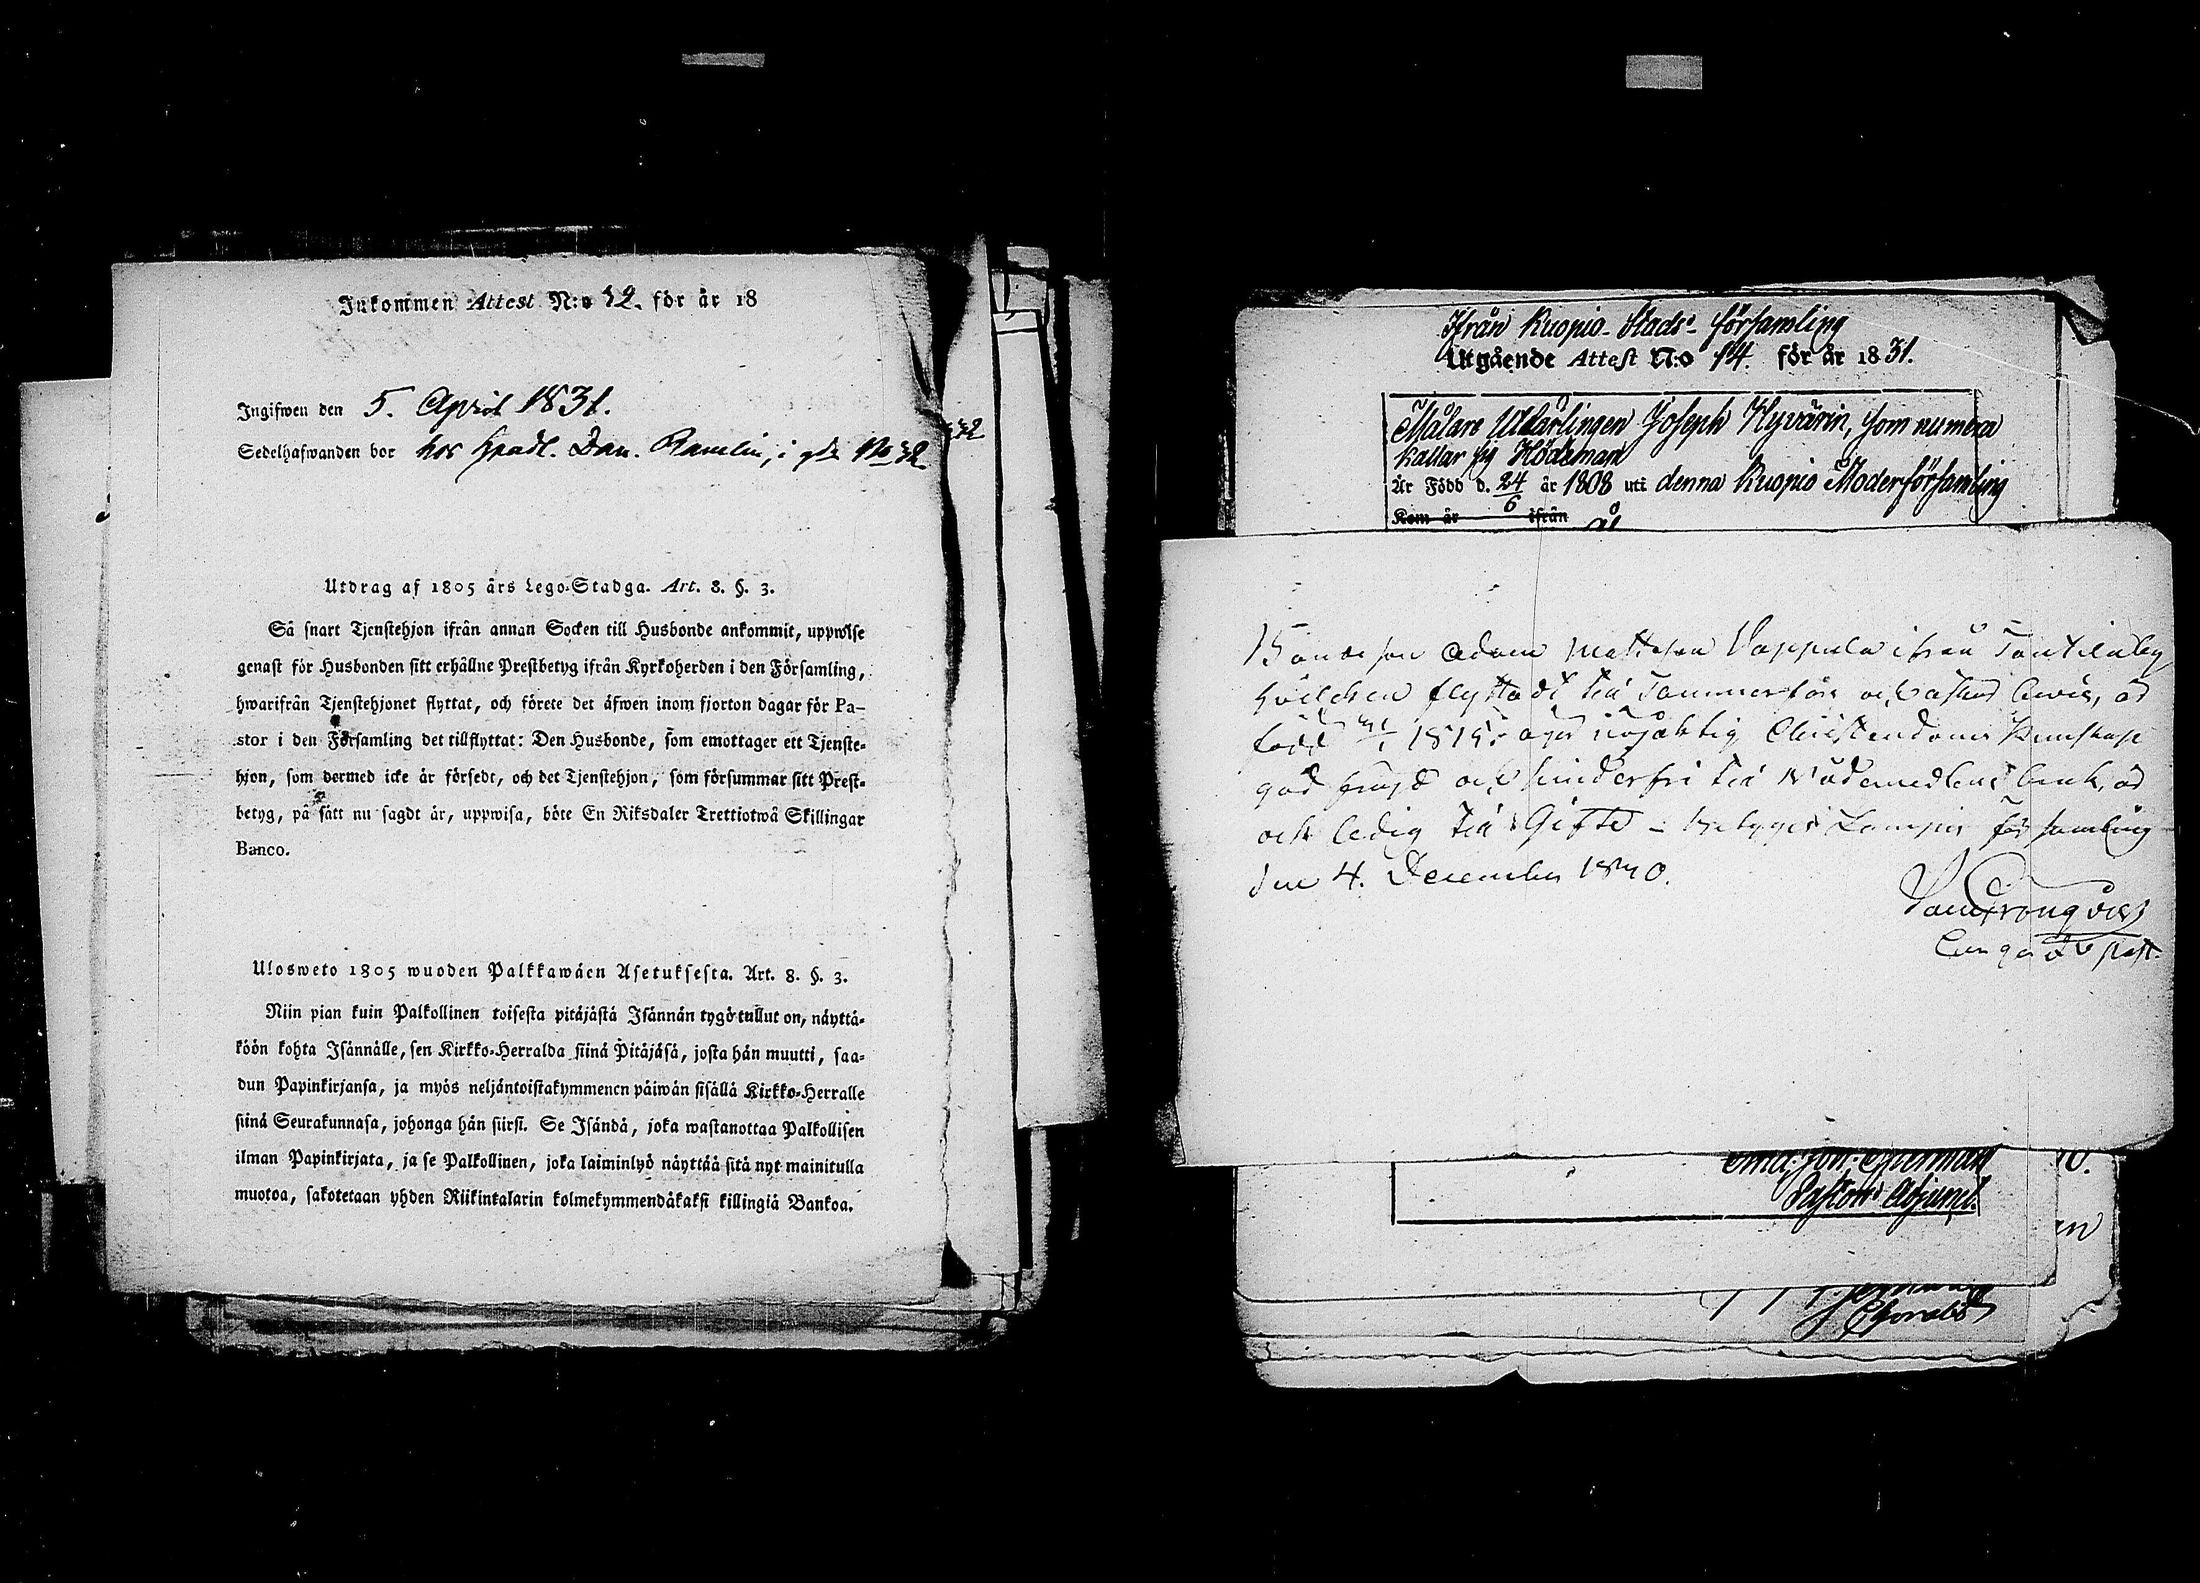 Inkommen Attest N:o 52. för år 18
Ingifwen den 5. April 1831.
Sedelhafwanden bor hos Handl. Dan. Ramelin, i gdn No 32.
Utdrag af 1805 års Lego-Stadga. Art. 8. §. 3.
Så snart Tjenstehjon ifrån annan Socken till Husbonde ankommit, uppwise
genast för Husbonden sitt erhållne Prestbetyg ifrån Kyrkoherden i den Församling,
hwarifrån Tjenstehjonet flyttat, och förete det äfwen inom fjorton dagar för Pa-
stor i den Församling det tillflyttat: Den Husbonde, som emottager ett Tjenste-
hjon, som dermed icke är försedt, och det Tjenstehjon, som försummar sitt Prest-
betyg, på sätt nu sagdt är, uppwisa, böte En Riksdaler Trettiotwå Skillingar
Banco.
Ulosweto 1805 wuoden Palkkawäen Asetuksesta. Art. 8. §. 3.
Niin pian kuin Palkollinen toisesta pitäjästä Isännän tygö tullut on, näyttä-
köön kohta Isännälle, sen Kirkko-Herralda siinä Pitäjäsä, josta hän muutti, saa-
dun Papinkirjansa, ja myös neljäntoistakymmenen päiwän sisällä Kirkko-Herralle
siinä Seurakunnasa, johonga hän siirsi. Se Isändä, joka wastanottaa Palkollisen
ilman Papinkirjata, ja se Palkollinen, joka laiminlyö näyttää sitä nyt mainitulla
muotoa, sakotetaan yhden Riikintalarin kolmekymmendäkaksi killingiä Bankoa.
Ifrån Kuopio Stads-församling
Utgående Attest N:o 14. för år 1831.
Målare Utlärlingen Joseph Hyvärin, som numera
kallar sig Hödsman
Är Född d. 24/6 år 1808 uti denna Kuopio Moderförsamling
Kom år ifrån
Bonde son Adam Mattsson Vappula ifrån Tantila by
hvilken flyttade till Tammerfors och åstad bevis, är
född 1815, äger nöjaktig Christendoms Kunskap
god frejd och hinderfri till Nådemedlens bruk, är
och ledig till Gifte - betygar Lampis församling
den 4. December 1840.
past.
Pastors Adjunct.